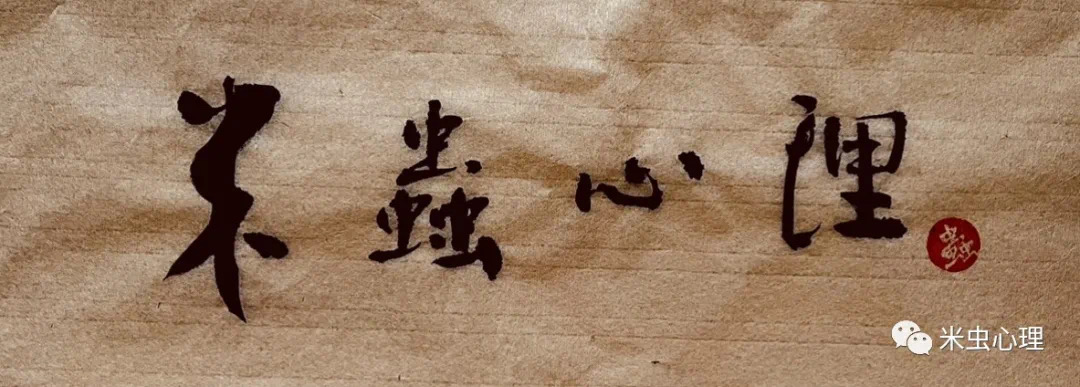 米蟲心理
蟲
米虫心理